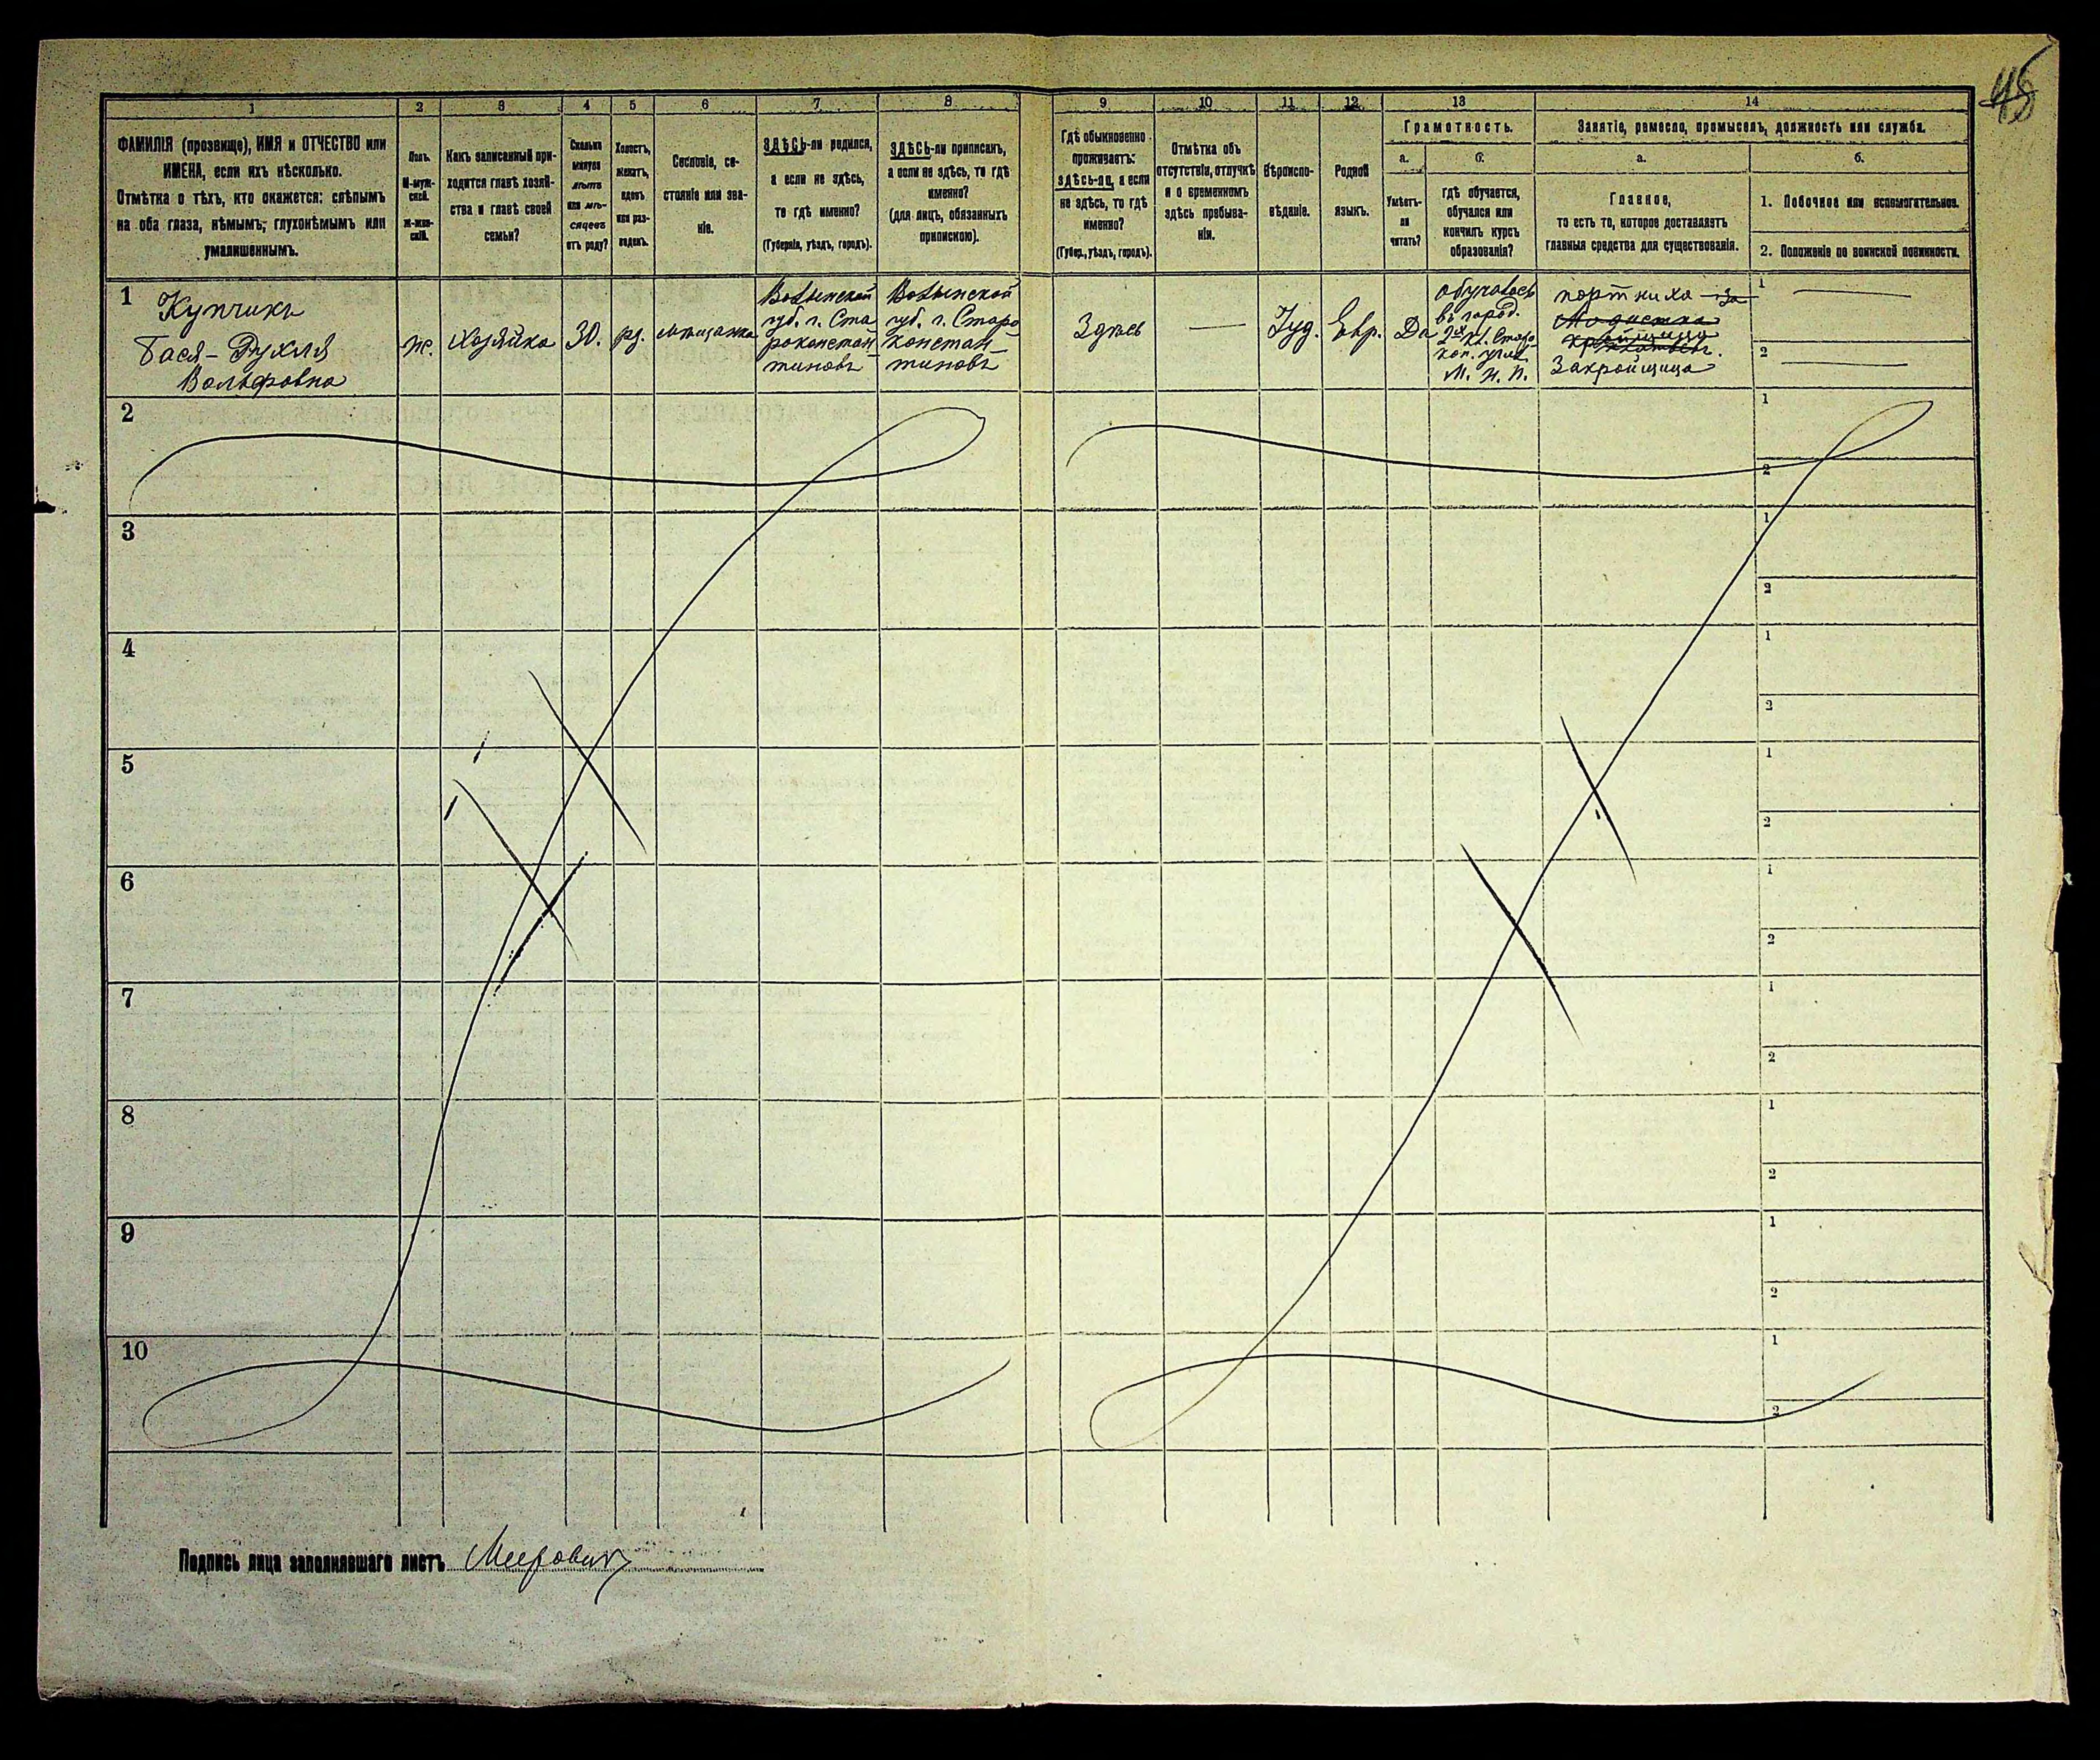 45
1
2
3
4
5
6
7
8
9
10
11
12
13
14
ФАМИЛІЯ (прозвище), ИМЯ и ОТЧЕСТВО или
ИМЕНА, если ихъ нѣсколько.
Отмѣтка о тѣхъ, кто окажется: слѣпымъ
на оба глаза, нѣмымъ, глухонѣмымъ или
умалишеннымъ.
Полъ.
М-муж-
ской.
Ж-жен-
скій.
Какъ записанный при-
ходится главѣ хозяй-
ства и главѣ своей
семьи?
Сколько
минуло
лѣтъ
или мѣ-
сяцевъ
отъ роду?
Холостъ,
женатъ,
вдовъ
или раз-
веденъ.
Сословіе, со-
стояніе или зва-
ніе.
ЗДѢСЬ-ли родился,
а если не здѣсь,
то гдѣ именно?
(Губернія, уѣздъ, городъ).
ЗДѢСЬ-ли приписанъ,
а если не здѣсь, то гдѣ
именно?
(для лицъ, обязанныхъ
припискою).
Гдѣ обыкновенно
проживаетъ:
здѣсь-ли, а если
не здѣсь, то гдѣ
именно?
(Губер., уѣздъ, городъ).
Отмѣтка объ
отсутствіи, отлучкѣ
и о временномъ
здѣсь пребыва-
ніи.
Вѣроиспо-
вѣданіе.
Родной
языкъ.
Грамотность.
а.
Умѣетъ-
ли
читать?
б.
гдѣ обучается,
обучался или
кончилъ курсъ
образованія?
Занятіе, ремесло, промыселъ, должность или служба.
а.
Главное,
то есть то, которое доставляетъ
главныя средства для существованія.
б.
1. Побочное или вспомогательное.
2. Положеніе по воинской повинности.
1
Купчикъ
Бася-Рухля
Вольфовна
ж.
Хозяйка
30.
мѣщанка
Волынской
губ. г. Ста
роконстан-
тиновъ
Волынской
губ. г. Старо
констан-
тиновъ
Здѣсь
—
Іуд.
Евр.
Да
обучалась
въ город.
2х кл. Старо-
кон. учил.
М. Н. П.
портниха -за
Модистка
Закройщица
1 —
2 —
2
1
2
3
1
2
4
1
2
5
1
2
6
1
2
7
1
2
8
1
2
9
1
2
10
1
2
Подпись лица заполнявшаго листъ Меерович